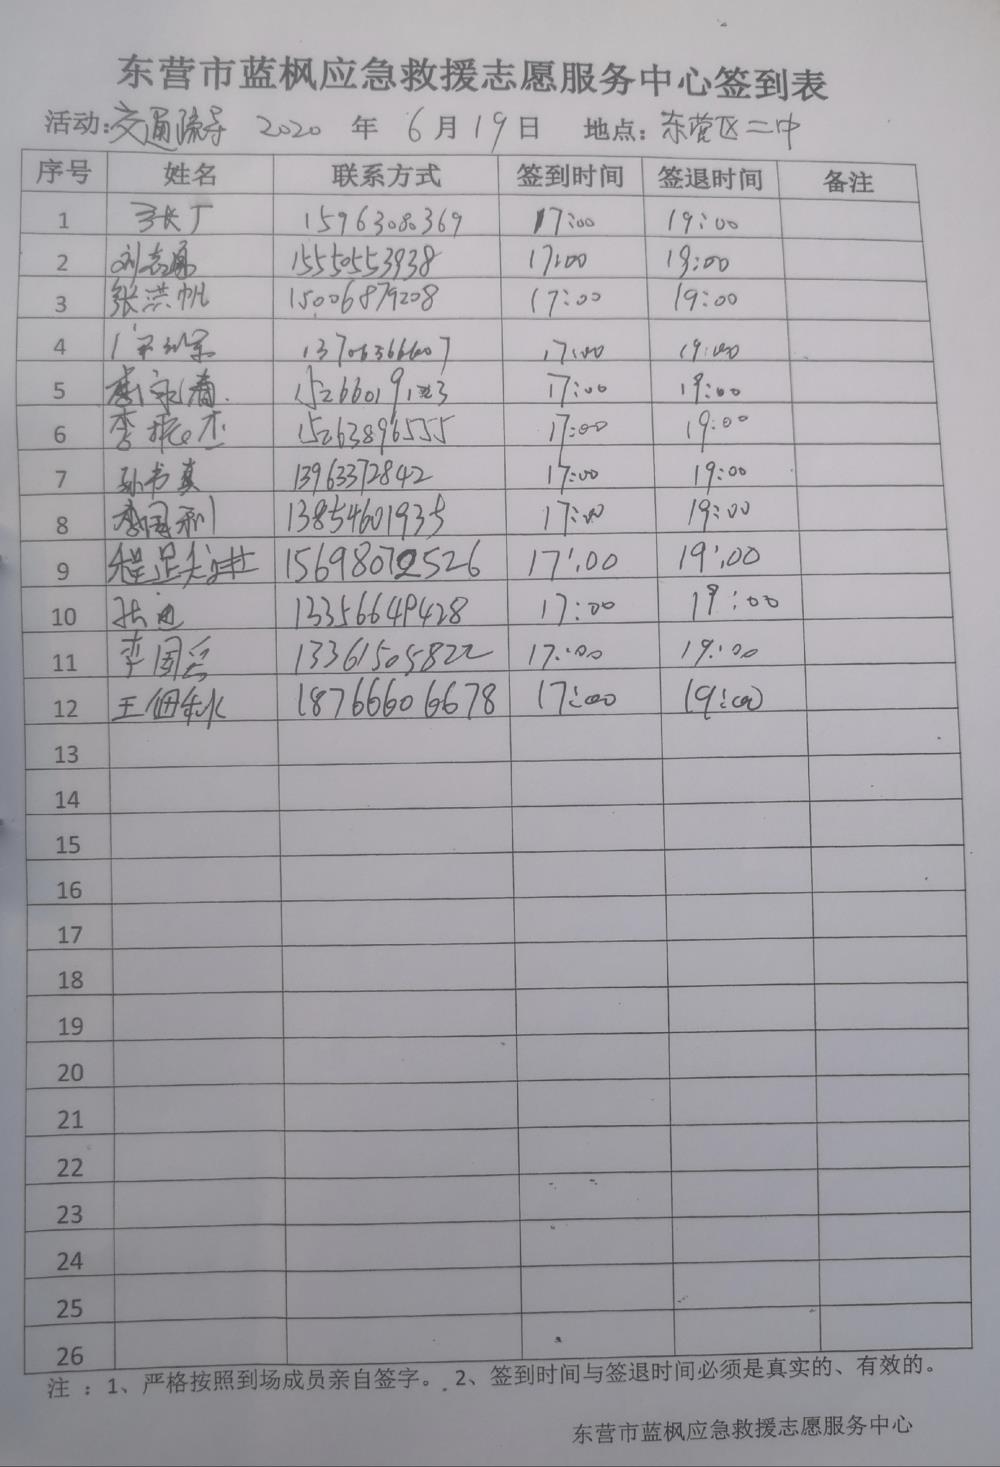 东营市蓝枫应急救援志愿服务中心签到表
活动:交通疏导 2020 年 6月19日 地点:东营区二中
序号 姓名 联系方式 签到时间 签退时间 备注
1 张广 15963080369 17:00 19:00
2 刘志勇 15550553938 17:00 19:00
3 张洪帆 15006879208 17:00 19:00
4 17:00 19:00
5 李永春 17:00 19:00
6 李振杰 15263896555 17:00 19:00
7 孙书真 13963372842 17:00 19:00
8 李国利 13854601935 17:00 19:00
9 17:00 19:00
10 13356649428 17:00 19:00
11 李国 13361505822 17:00 19:00
12 王 18766606678 17:00 19:00
13
14
15
16
17
18
19
20
21
22
23
24
25
26
注 :1、严格按照到场成员亲自签字。 2、签到时间与签退时间必须是真实的、有效的。
东营市蓝枫应急救援志愿服务中心